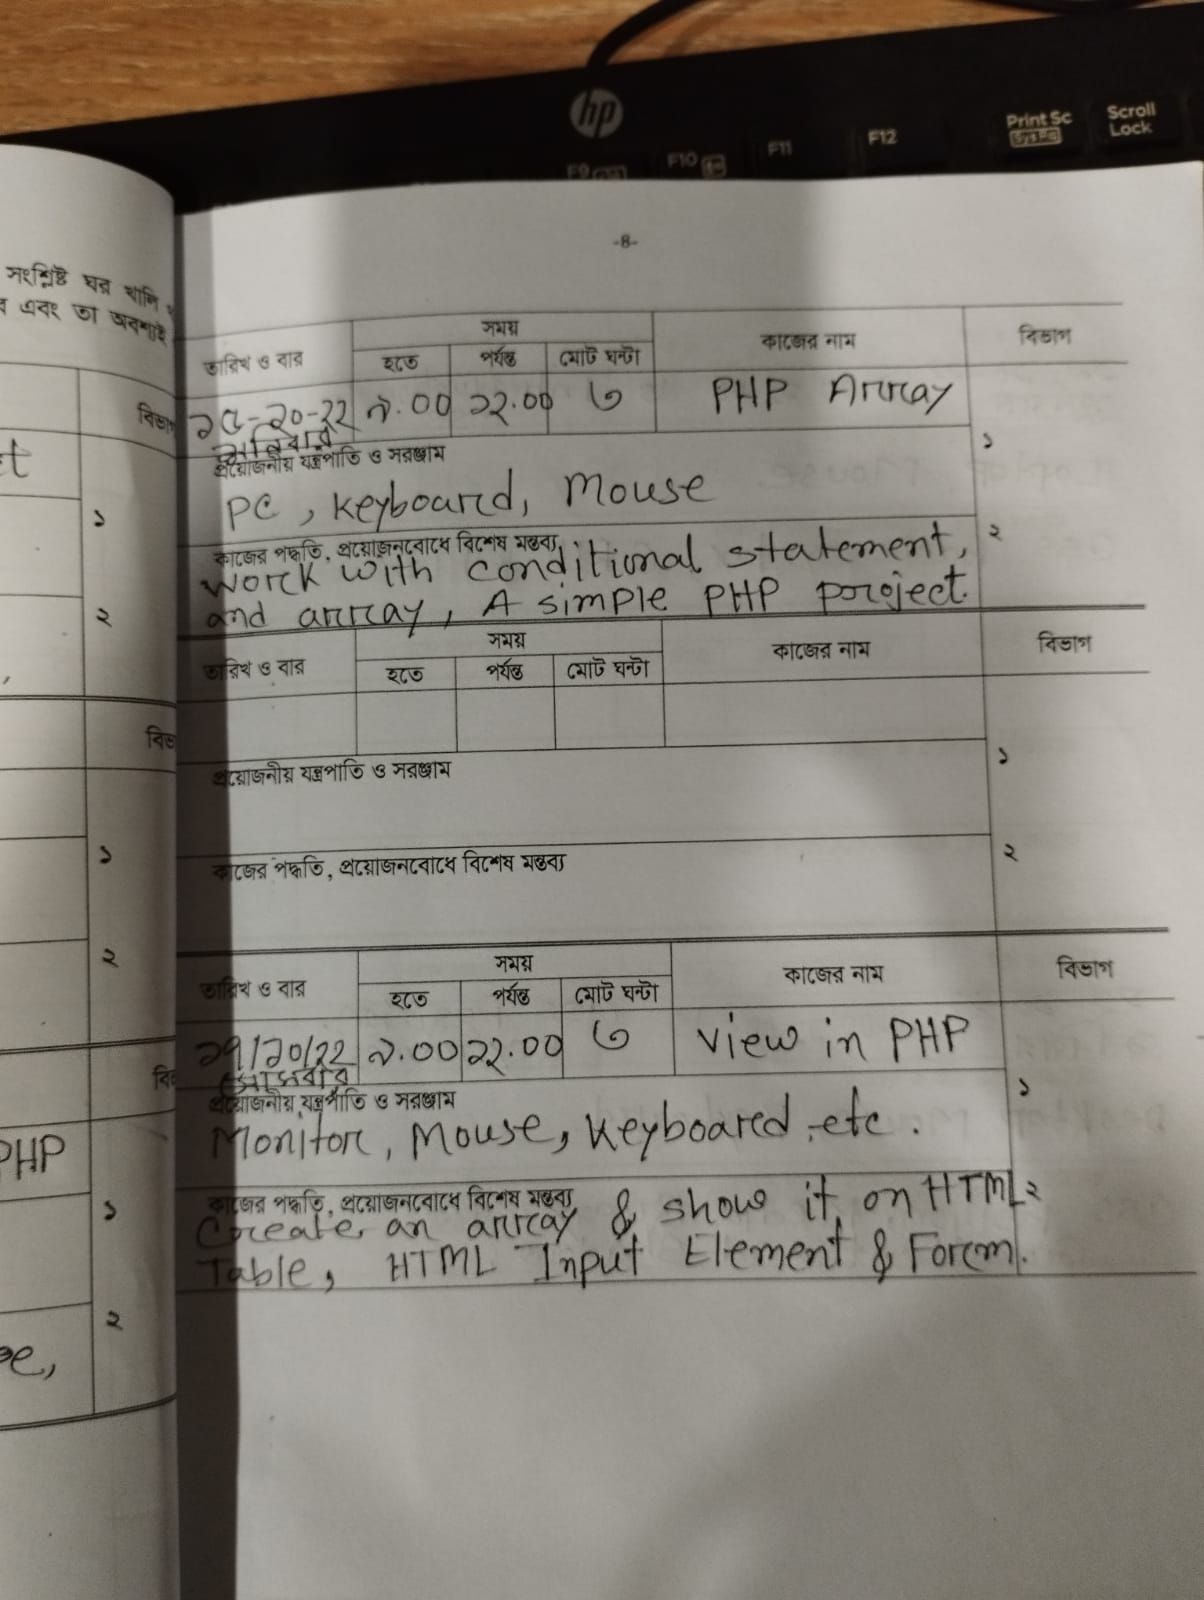 hp
Print Sc
SysRq
Scroll
Lock
F9
F10
F11
F12
-৪-
সংশ্লিষ্ট ঘর খালি
এবং তা অবশ্যই
বিভাগ
১
২
PHP
তারিখ ও বার
সময়
হতে পর্যন্ত মোট ঘন্টা
কাজের নাম
বিভাগ
১৫-১০-২২ ৯.০০ ১২.০০ ৩ PHP Array
শনিবার
প্রয়োজনীয় যন্ত্রপাতি ও সরঞ্জাম
১
PC, Keyboard, Mouse
কাজের পদ্ধতি, প্রয়োজনবোধে বিশেষ মন্তব্য
২
Work with conditional statement,
and array, A simple PHP project.
তারিখ ও বার
সময়
হতে পর্যন্ত মোট ঘন্টা
কাজের নাম
বিভাগ
প্রয়োজনীয় যন্ত্রপাতি ও সরঞ্জাম
১
কাজের পদ্ধতি, প্রয়োজনবোধে বিশেষ মন্তব্য
২
তারিখ ও বার
সময়
হতে পর্যন্ত মোট ঘন্টা
কাজের নাম
বিভাগ
১৭/১০/২২ ৯.০০ ১২.০০ ৩ View in PHP
সোমবার
প্রয়োজনীয় যন্ত্রপাতি ও সরঞ্জাম
১
Monitor, Mouse, Keyboard, etc.
কাজের পদ্ধতি, প্রয়োজনবোধে বিশেষ মন্তব্য
২
Create an array & show it on HTML
Table, HTML Input Element & Form.